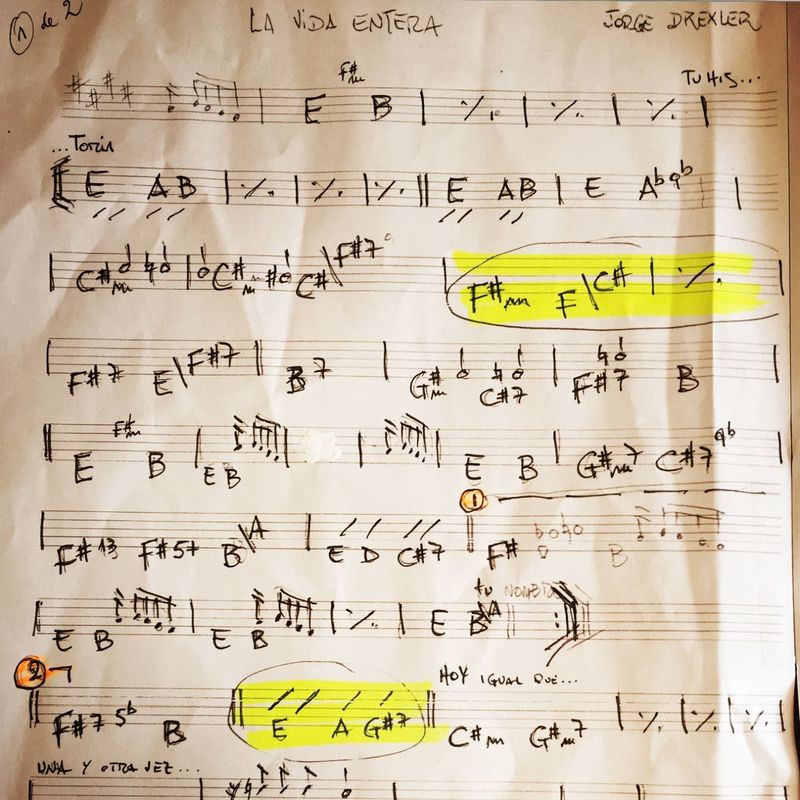 1 de 2 LA VIDA ENTERA JORGE DREXLER
F#m TU HIS...
E B
...TORIA
E A B E A B E A
C#m C#m C# \ F#7 F#m E \ C#
F#7 E \ F#7 B7 G#m C#7 F#7 B
F#m
E B E B E B G#m7 C#7 9b
1
F#13 F#5+ B \ A E D C#7 F# B
TU NOMBRE
E B E B E B \ A
2 HOY IGUAL QUE...
F#7 5b B E A G#7 C#m G#m7
UNA Y OTRA VEZ...